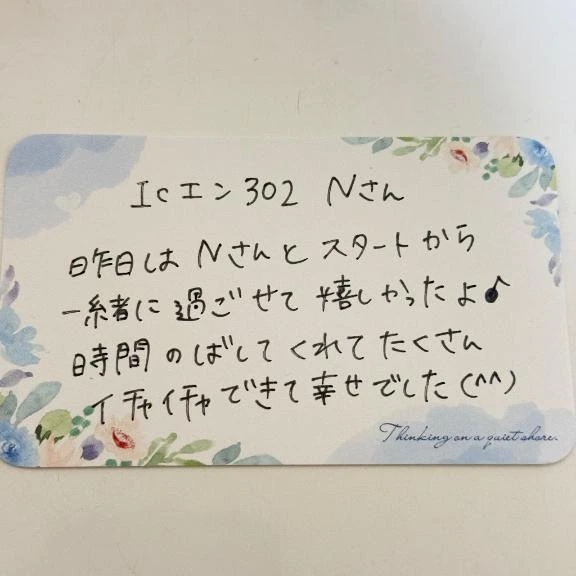 Icエン302 Nさん
昨日は Nさんと スタートから
一緒に過ごせて嬉しかったよ♪
時間のばしてくれてたくさん
イチャイチャできて幸せでした(^^)
Thinking on a quiet shore.